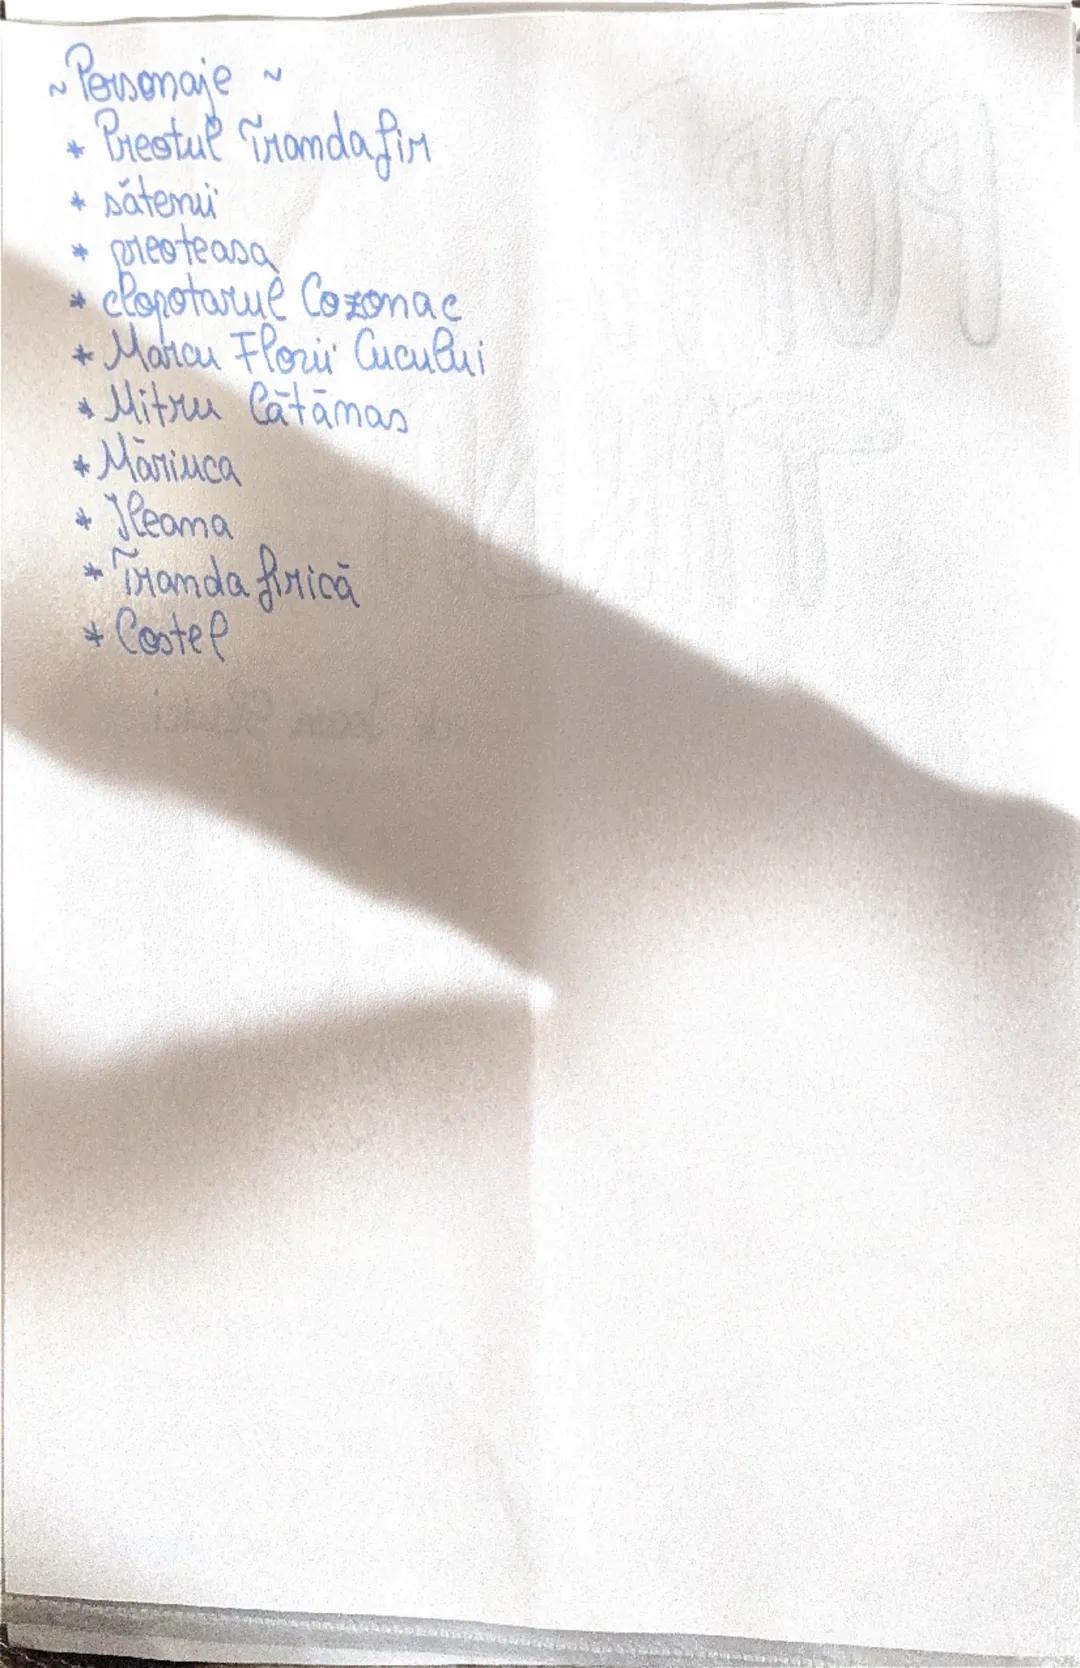 ~ Personaje ~
* Preotul Trandafir
* sătenii
* preoteasa
* clopotarul Cozonac
* Marcu Florii Cucului
* Mitru Cătănas
* Măriuca
* Ileana
* Trandafirică
* Costel
de Ioan Slavici